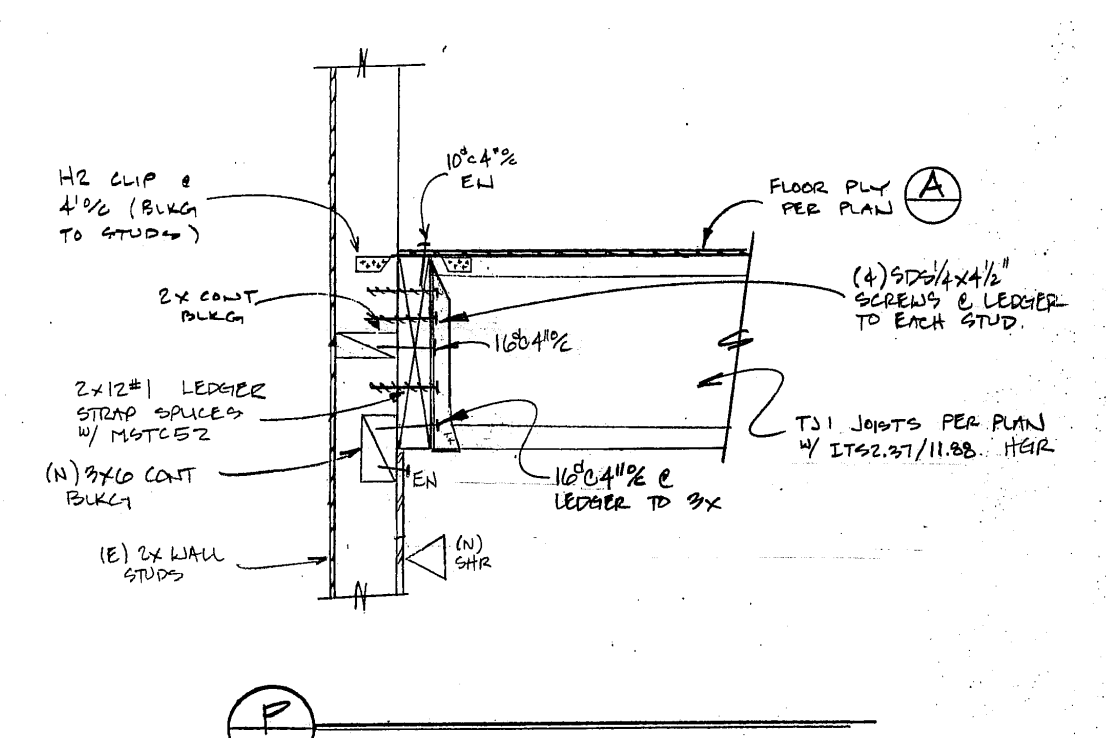 H2 CLIP @
4' O/C (BLKG
TO STUDS)
10d @ 4" O/C
EN
FLOOR PLY
PER PLAN
A
2X CONT
BLKG
(4) SDS 1/4 X 4 1/2"
SCREWS @ LEDGER
TO EACH STUD.
16d @ 4" O/C
2X12 #1 LEDGER
STRAP SPLICES
W/ MSTC52
TJI JOISTS PER PLAN
W/ ITS2.37/11.88 HGR
(N) 3X6 CONT
BLKG
EN
16d @ 4" O/C @
LEDGER TO 3X
(E) 2X WALL
STUDS
(N)
SHR
P